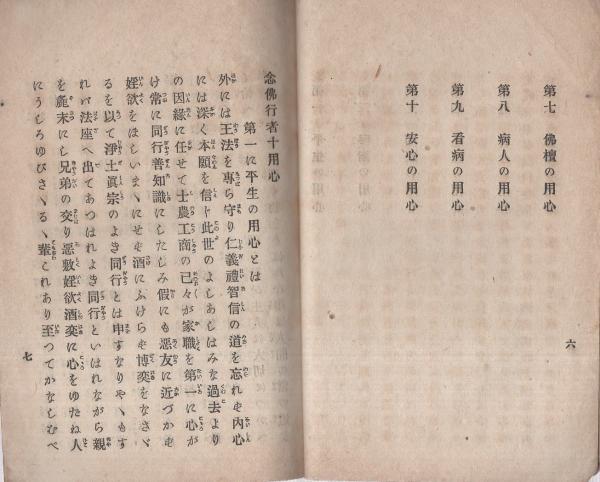 第七　佛檀の用心
第八　病人の用心
第九　看病の用心
第十　安心の用心
六
念佛行者十用心
第一に平生の用心とは
外には王法を專ら守り仁義禮智信の道を忘れも內心
には深く本願を信ト此世のよしあしはみな過去より
の因緣に任せて士農工商の己々が家職を第一に心が
け常に同行善知識にしたしみ假にも惡友に近づかも
婬欲をほしいまゝにせも酒にふけらも博奕をなさゞ
るを以て淨土眞宗のよき同行とは申すなりやゝもす
れバ法座へ出てあつはれよき同行といはれながら親
を麁末にし兄弟の交り惡敷婬欲酒奕に心をゆだね人
にうしろゆびさゝるゝ輩これあり至つてかなしむべ
七